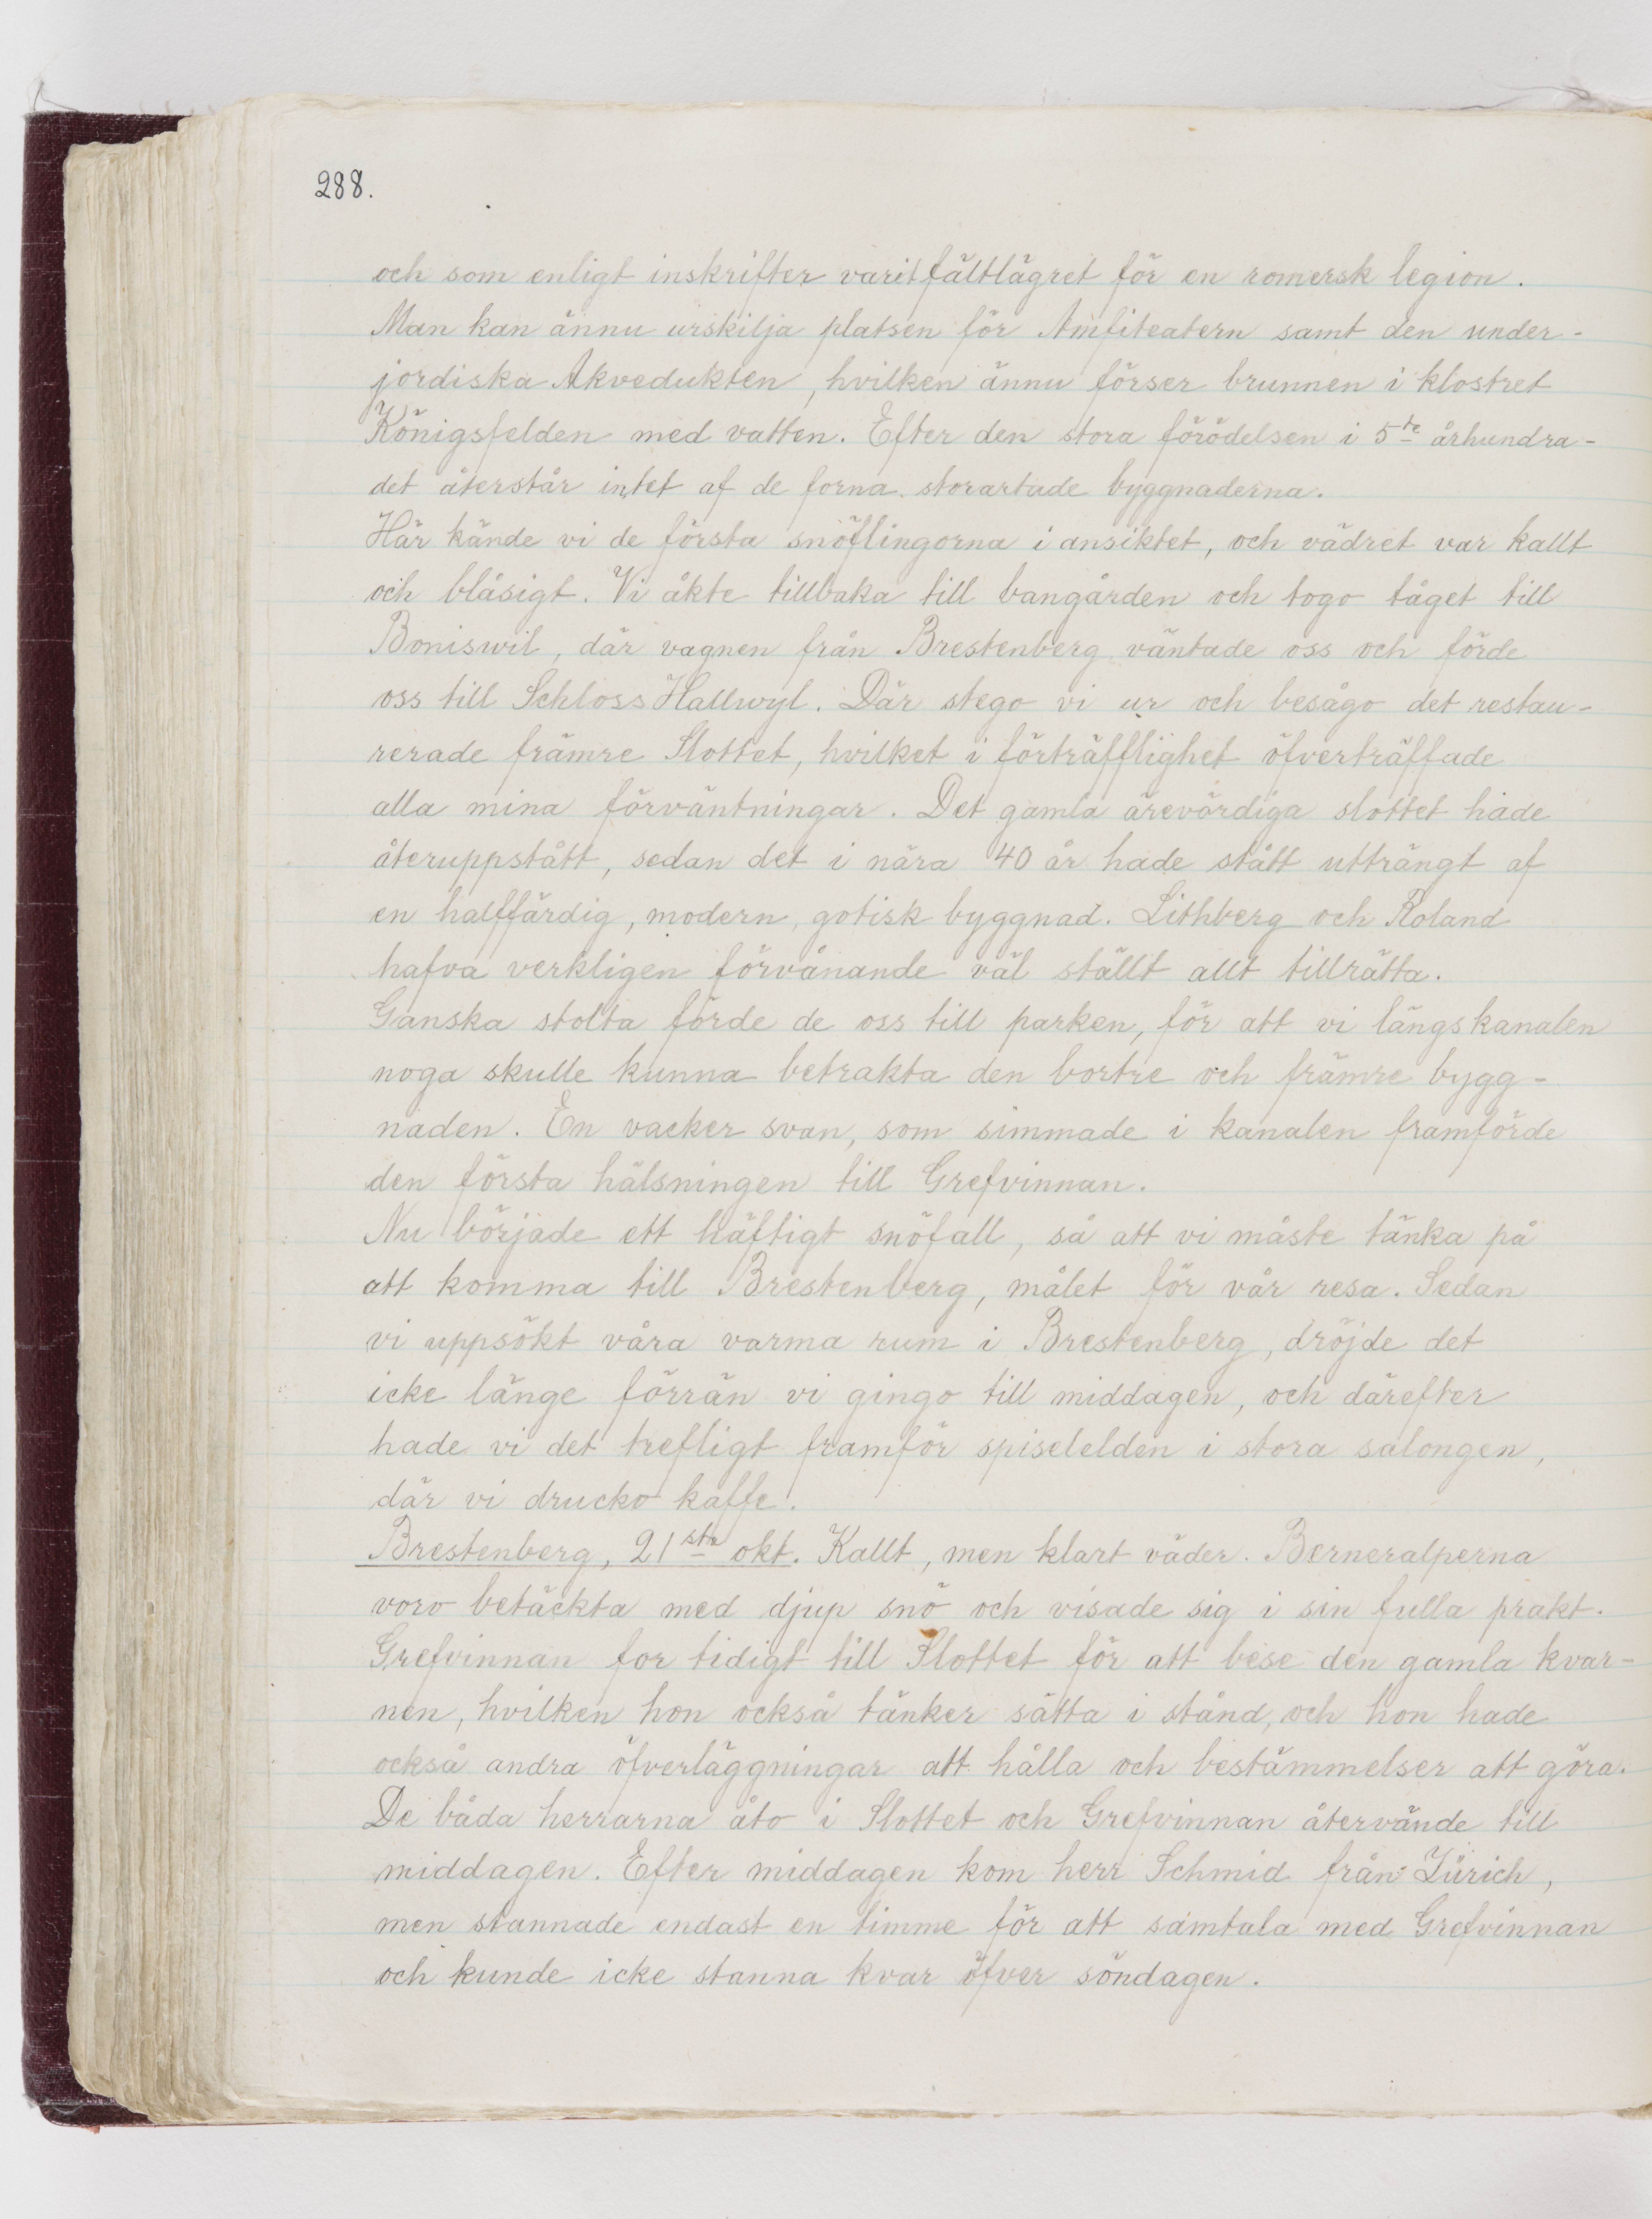 288.
och som enligt inskrifter varit fältlägret för en romersk legion.
Man kan ännu urskilja platsen för Amfiteatern samt den under-
jordiska Akvedukten, hvilken ännu förser brunnen i klostret
Königsfelden med vatten. Efter den stora förödelsen i 5te århundra-
det återstår intet af de forna storartade byggnaderna.
Här kände vi de första snöflingorna i ansiktet, och vädret var kallt
och blåsigt. Vi åkte tillbaka till bangården och togo tåget till
Boniswil, där vagnen från Brestenberg väntade oss och förde
oss till Schloss Hallwyl. Där stego vi ur och besågo det restau-
rerade främre Slottet, hvilket i förträfflighet öfverträffade
alla mina förväntningar. Det gamla ärevördiga slottet hade
återuppstått, sedan det i nära 40 år hade stått utträngt af
en halffärdig, modern, gotisk byggnad. Lithberg och Roland
hafva verkligen förvånande väl ställt allt tillrätta.
Ganska stolta förde de oss till parken, för att vi längs kanalen
noga skulle kunna betrakta den bortre och främre bygg-
naden. En vacker svan, som simmade i kanalen framförde
den första hälsningen till Grefvinnan.
Nu började ett häftigt snöfall, så att vi måste tänka på
att komma till Brestenberg, målet för vår resa. Sedan
vi uppsökt våra varma rum i Brestenberg, dröjde det
icke länge förrän vi gingo till middagen, och därefter
hade vi det trefligt framför spiselelden i stora salongen,
där vi drucko kaffe.
Brestenberg, 21sta okt. Kallt, men klart väder. Berneralperna
voro betäckta med djup snö och visade sig i sin fulla prakt.
Grefvinnan for tidigt till Slottet för att bese den gamla kvar-
nen, hvilken hon också tänker sätta i stånd, och hon hade
också andra öfverläggningar att hålla och bestämmelser att göra.
De båda herrarna åto i Slottet och Grefvinnan återvände till
middagen. Efter middagen kom herr Schmid från Zürich,
men stannade endast en timme för att samtala med Grefvinnan
och kunde icke stanna kvar öfver söndagen.